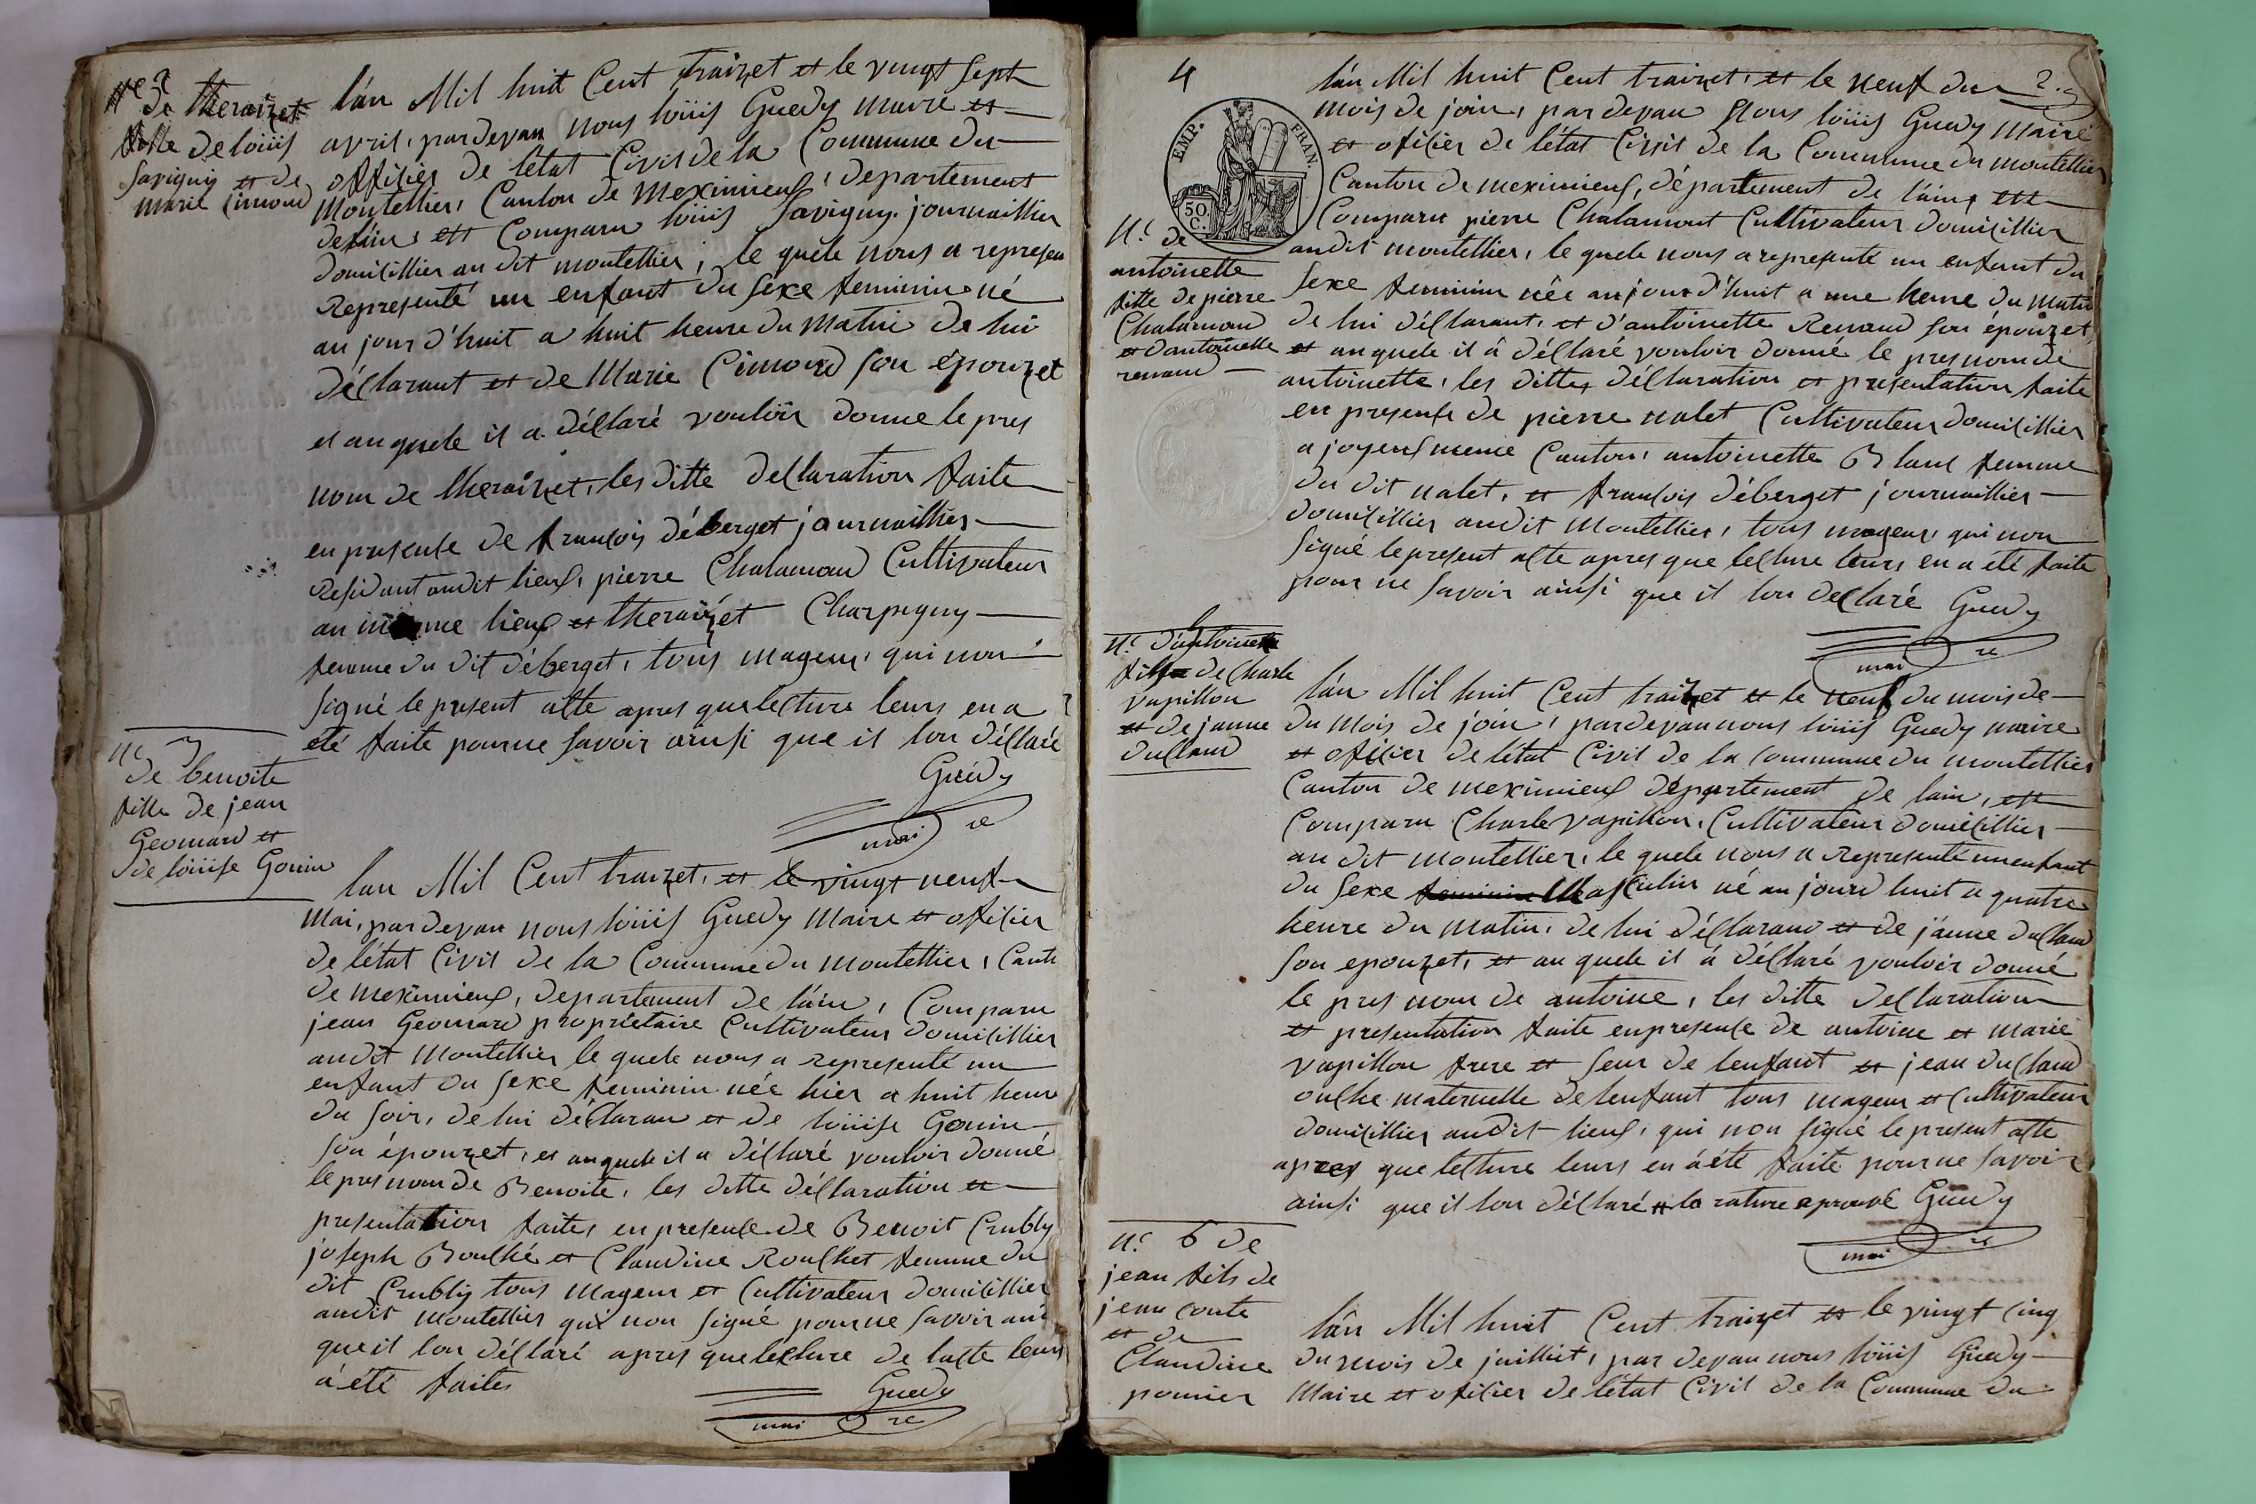 de theraizet
fille de loüis
Savigniy et de
marie Cimond
l'án Mil huit Cent traizet et le vingt sept
avril, par devan nous loüis Guedy maire et
offisier de l'état Civis de la Commune du
Montellier, Canton de Meximieux, departement
de l'áin, ett Comparu loüis Savigny journaillier
domicillier au dit montellier, le quele nous a represen
Representé un enfant du sexe feminin né
au jour d'huit a huit heure du Matin de lui
déclarant et de Marie Cimond son épouzet
et au quele il a déclaré vouloir donne le pres
nom de theraizet, les ditte declaration faite
en presense de fransois déberget journaillier
Residant audit lieux, pierre Chalamond Cultivateur
au même lieux et theraizet Charpigny
femme du dit déberget, tous mageur, qui non
signé le present acte apres que lecture leurs en a
eté faite pour ne savoir ainsi que il lon déclaré
Guédy
maire
n.e 3
de benoite
fille de jean
Geomard et
de loüise Gonin
lan Mil Cent traizet, et le vingt neuf
Mai, par devan nous loüis Guedy Maire et ofisier
de l'état Civis de la Commune du Montellier, Cant
de meximieux, departement de l'áin, Comparu
jean Geomard propriétaire Cultivateur domicillier
audit Montellier le quele nous a representé un
enfant du sexe feminin née hier a huit heure
du soir, de lui déclaran et de loüise Gonin
son épouzet, et au quele il a déclaré vouloir donné
le pres nom de Benoite, les ditte déclaration et
presentation faites en presense de Benoit Crubly
joseph Bouché et Claudine Rouchet femme du
dit Crubly tous mageur et Cultivateur domicillier
audit Montellier qui non signé pour ne savoir ainsi
que il lon déclaré apres que lecture de lacte leurs
á été faites
Guedy
maire
4
2.
EMP. FRAN.
50. C.
l'án Mil huit Cent traizet, et le neuf du
mois de join, par devan Nous loüis Guedy Maire
et ofisier de l'état Civit de la Commune du montellier
Canton de meximieux, département de l'áin, ett
Comparu pierre Chalamont Cultivateur domicillier
audit montellier, le quele nous a representé un enfant du
sexe feminin née au jour d'huit a une heure du matin
de lui déclarant, et d'antoinette Renaud son épouzet,
et au quele il á déclaré vouloir donné le pres nom de
antoinette, les dittes déclaration et presentation faite
en presense de pierre nalet Cultivateur domicillier
a joyeux meme Canton, antoinette Blanc femme
du dit nalet, et fransois déberget journaillier
domicillier audit Montellier, tous mageur, qui non
signé le present acte apres que lecture leurs en a été faite
pour ne savoir ainsi que il lon declaré Guedy
maire
n.e de
antoinette
fille de pierre
Chalamond
et dantoinette
renaud
n.e d'antoine
fils de Charle
vapillon
et de jeanne
duclaud
l'án Mil huit Cent traizet et le neuf du mois de
du Mois de join, par devan nous loüis Guedy maire
et ofisier de l'état Civit de la Commune du montellier
Canton de meximieux département de lain, ett
Comparu Charle vapillon, Cultivateur domicillier
au dit montellier, le quele nous a Representé un enfant
du sexe feminin Masculin né au jourd huit a quatre
heure du matin, de lui déclarand et de jánne duclaud
son epouzet, et au quele il á déclaré vouloir donné
le pres nom de antoine, les ditte declaration
et presentation faite en presense de antoine et marie
vapillon frere et seur de lenfant et jean duclaud
oncle maternelle de lenfant tous mageur et Cultivateur
domicillier audit lieux, qui non signé le present acte
apres que lecture leurs en á été faite pour ne savoir
ainsi que il lon déclaré et la rature aprouvé Guedy
maire
n.e 6 de
jean fils de
jean conte
et de
Claudine
pomier
l'án Mil huit Cent traizet et le vingt cinq
du mois de juilliet, par devan nous loüis Guedy
Maire et ofisier de l'état Civil de la Commune du